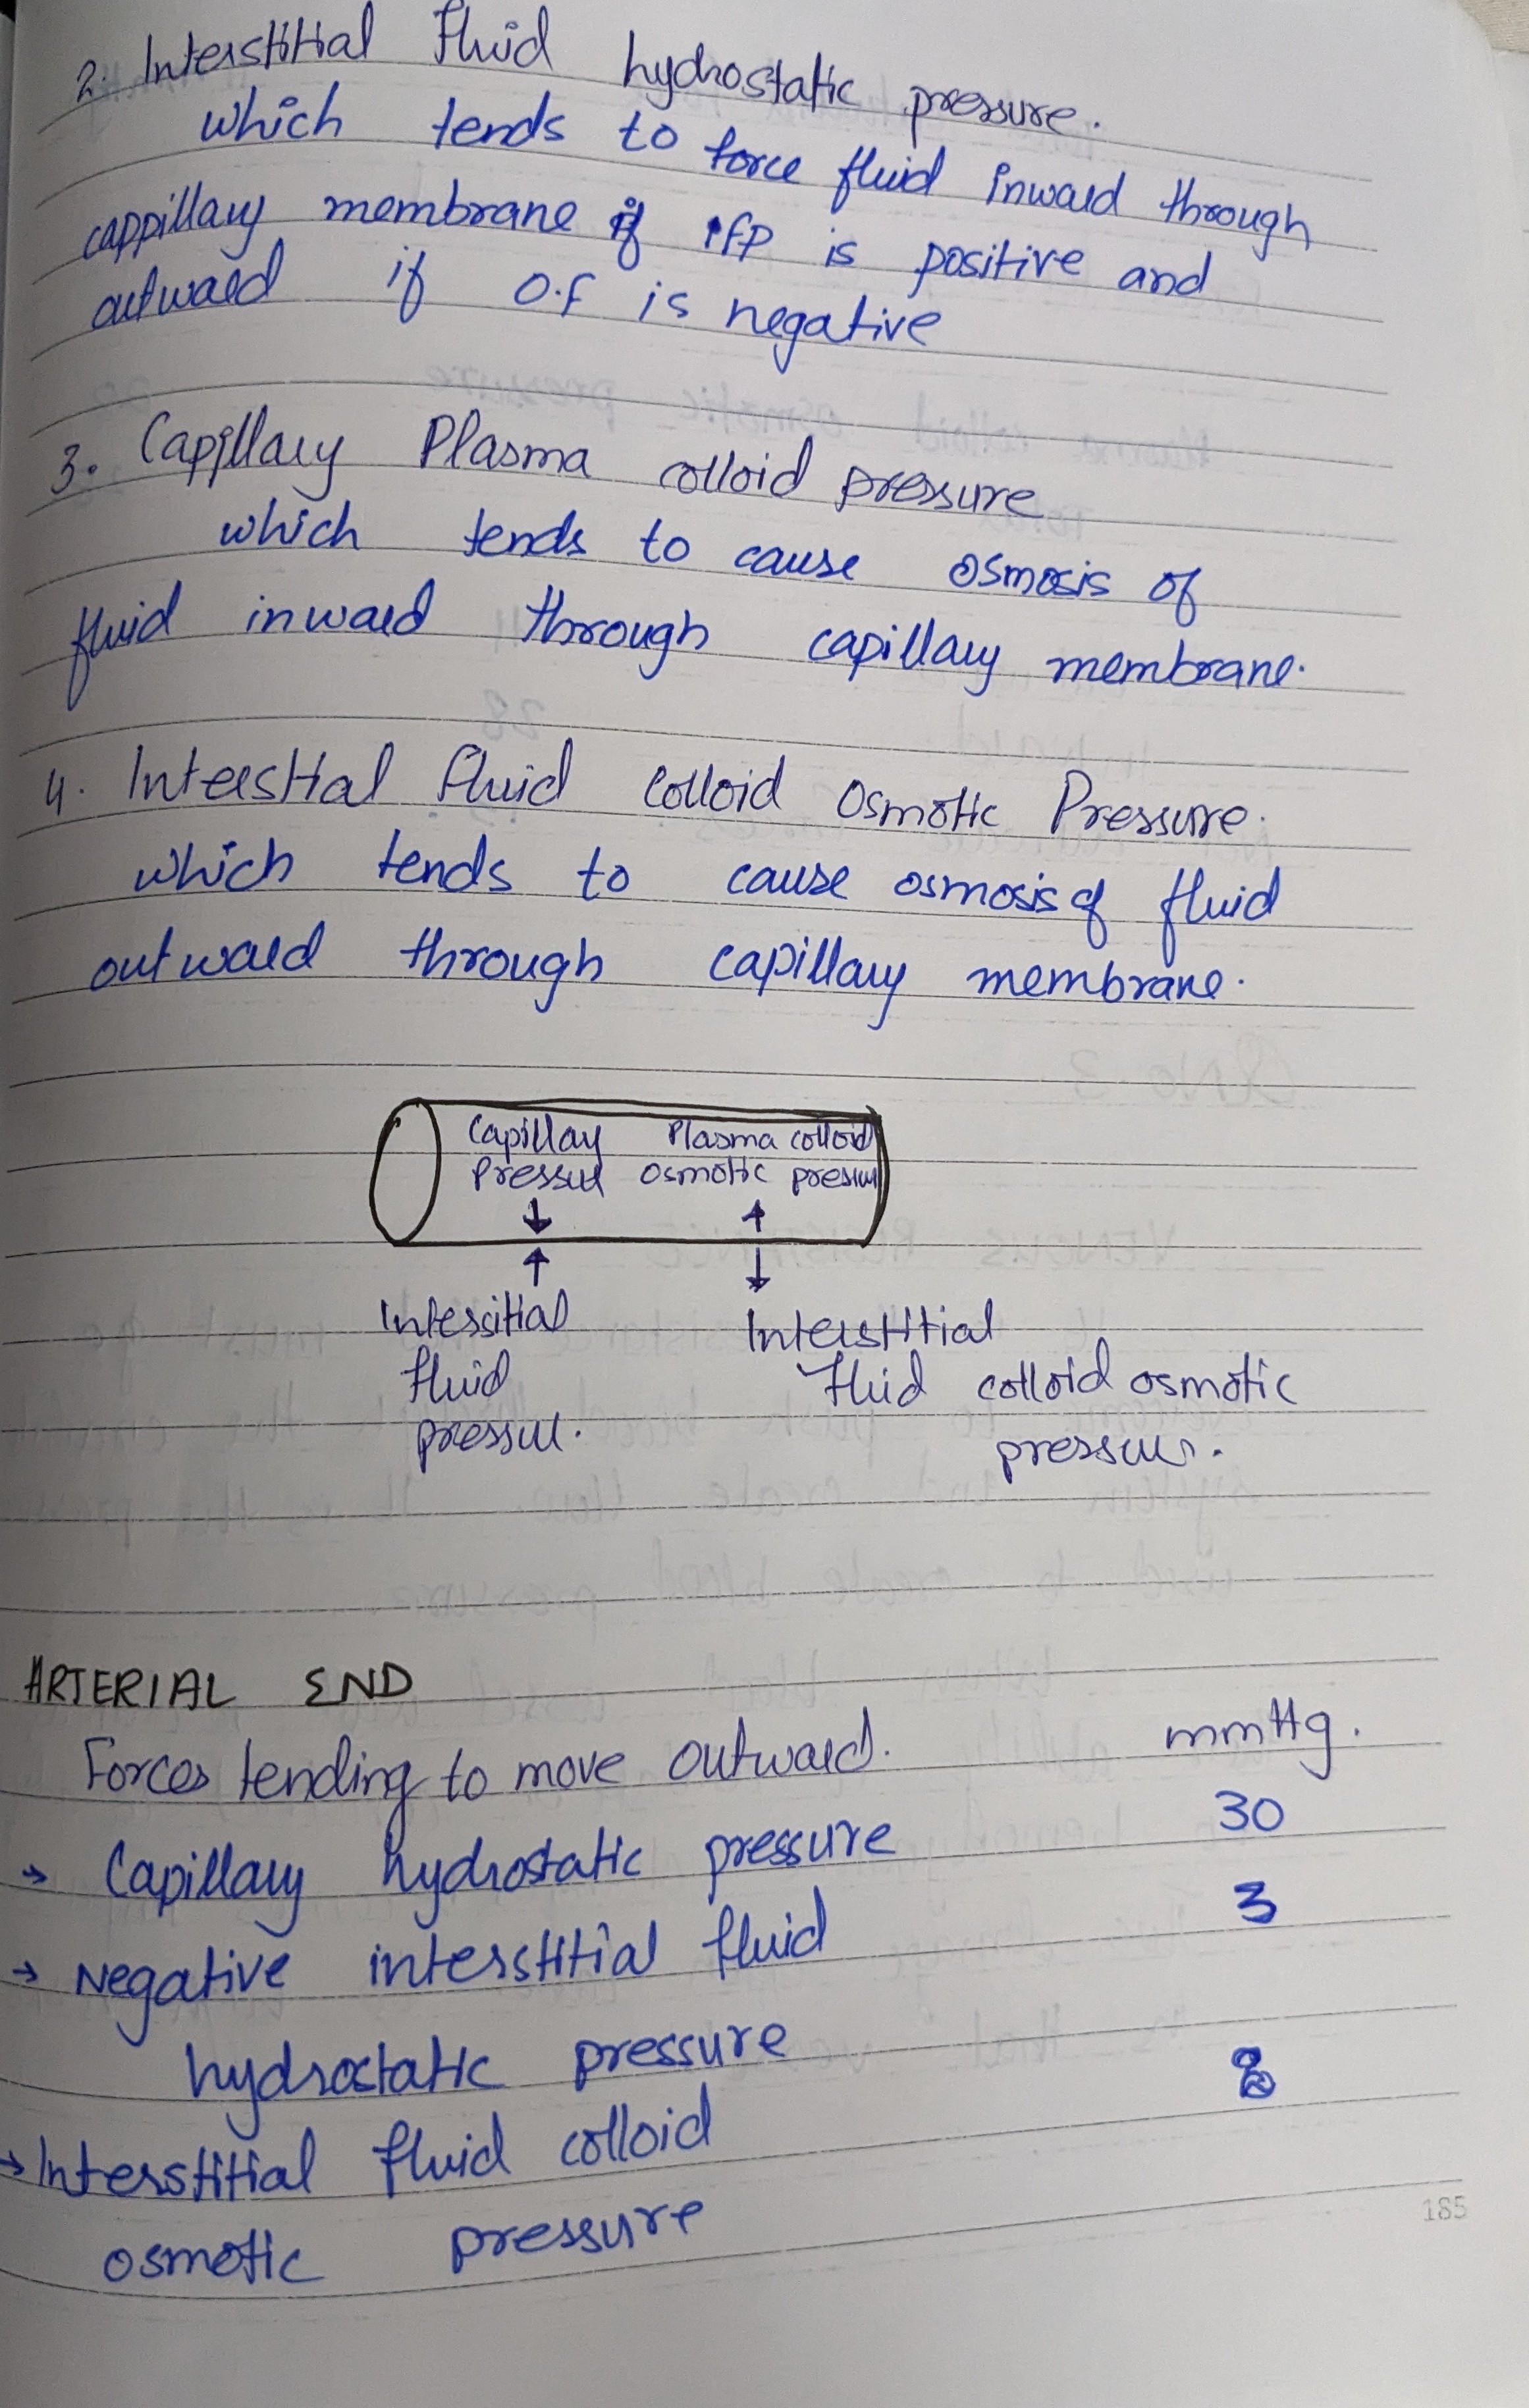 2. Interstitial Fluid hydrostatic pressure.
which tends to force fluid inward through
cappillary membrane if ifp is positive and
outward if O.F is negative
3. Capillary Plasma colloid pressure
which tends to cause osmosis of
fluid inward through capillary membrane.
4. Interstial fluid Colloid Osmotic Pressure.
which tends to cause osmosis of fluid
outward through capillary membrane.
Capillay Plasma colloid
Pressur osmotic pressur
↓ ↑
↑ ↓
Interssitial Interstitial
fluid fluid colloid osmotic
pressur. pressur.
ARTERIAL END
Forces tending to move outward. mmHg.
→ Capillary hydrostatic pressure 30
→ Negative interstitial fluid 3
hydrostatic pressure
→ Interstitial fluid colloid 8
osmotic pressure
185